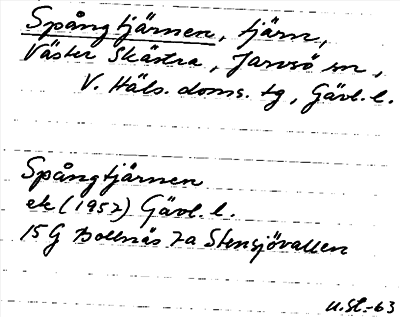 Spångtjärnen, tjärn,
Väster Skästra, Järvsö sn,
V. Häls. doms. tg, Gävl. l.
Spångtjärnen
ek (1952) Gävl. l.
15G Bollnäs 7a Stensjövallen
U.Sl.-63